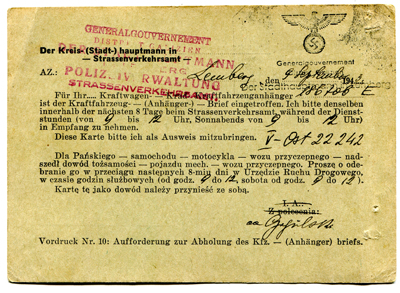 GENERALGOUVERNEMENT
DISTRIKT GALIZIEN
Der Kreis- (Stadt-) hauptmann in
— Strassenverkehrsamt —
POLIZEIVERWALTUNG
STRASSENVERKEHRSAMT
Generalgouvernement
Der Stadthauptmann
AZ.: Lemberg, den 9 September 194
Für Ihr.... Kraftwagen— Kraftfahrzeuganhänger E
ist der Kraftfahrzeug- — (Anhänger-) — Brief eingetroffen. Ich bitte denselben
innerhalb der nächsten 8 Tage beim Strassenverkehrsamt, während der Dienst-
stunden (von 9 bis 12 Uhr, Sonnabends von 9 bis 12 Uhr)
in Empfang zu nehmen.
Diese Karte bitte ich als Ausweis mitzubringen. V-Ost 22242
Dla Pańskiego — samochodu — motocykla — wozu przyczepnego — nad-
szedł dowód tożsamości — pojazdu mech. — wozu przyczepnego. Proszę o ode-
branie go w przeciągu następnych 8-miu dni w Urzędzie Ruchu Drogowego,
w czasie godzin służbowych (od godz. 9 do 12, sobota od godz. 9 do 12).
Kartę tę jako dowód należy przynieść ze sobą.
I. A.
Z polecenia:
Vordruck Nr. 10: Aufforderung zur Abholung des Kfz. — (Anhänger) briefs.